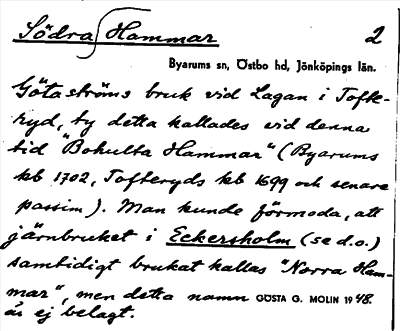 Södra Hammar 2
Byarums sn, Östbo hd, Jönköpings län.
Götaströms bruk vid Lagan i Tofte-
ryd, ty detta kallades vid denna
tid "Bohulta Hammar" (Byarums
kb 1702, Tofteryds kb 1699 och senare
passim). Man kunde förmoda, att
järnbruket i Eckersholm (se d.o.)
samtidigt brukat kallas "Norra Ham-
mar", men detta namn GÖSTA G. MOLIN 1948.
är ej belagt.